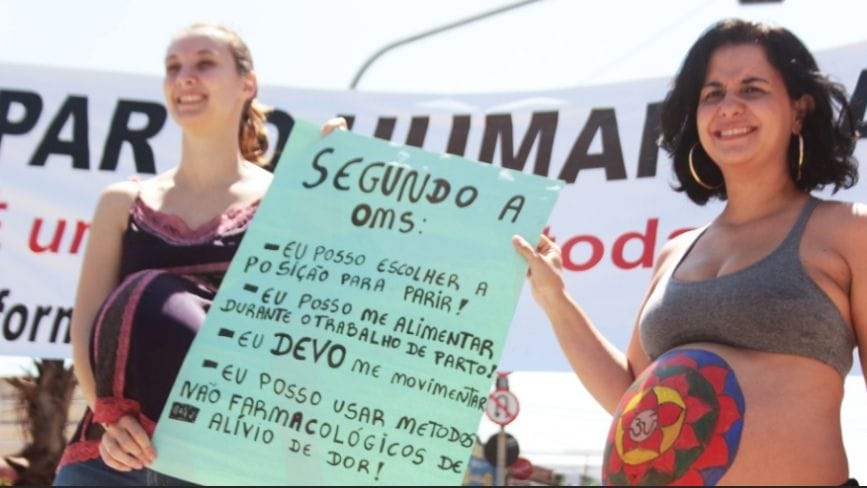 PARTO HUMAN
É um
toda
form
SEGUNDO A
OMS:
- EU POSSO ESCOLHER A
POSIÇÃO PARA PARIR!
- EU POSSO ME ALIMENTAR
DURANTE O TRABALHO DE PARTO!
- EU DEVO ME MOVIMENTAR
- EU POSSO USAR METODOS
NÃO FARMACOLÓGICOS DE
ALÍVIO DE DOR!